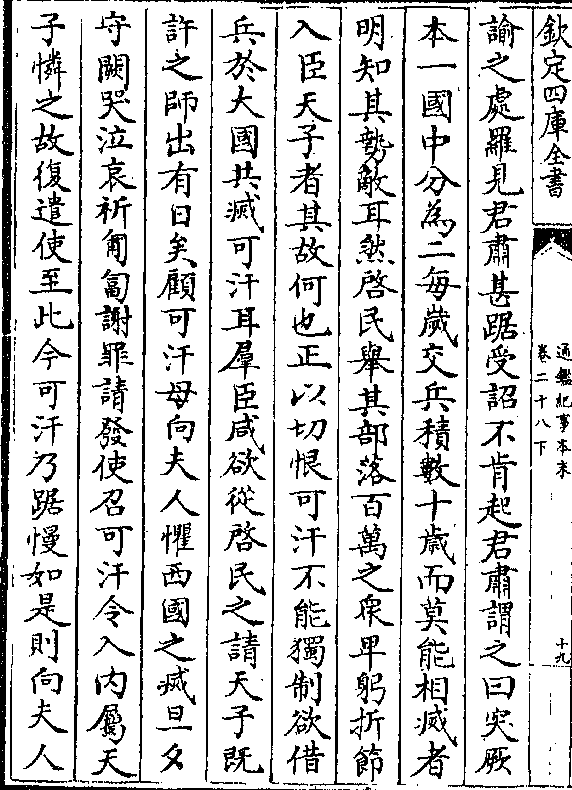 欽定四庫全書
通鑑紀事本末
卷二十八下
十九
諭之處羅見君肅甚踞受詔不肯起君肅謂之曰突厥
本一國中分為二每歲交兵積數十歲而莫能相滅者
明知其勢敵耳然啓民舉其部落百萬之衆卑躬折節
入臣天子者其故何也正以切恨可汗不能獨制欲借
兵於大國共滅可汗耳羣臣咸欲從啓民之請天子既
許之師出有日矣顧可汗母向夫人懼西國之滅旦夕
守闕哭泣哀祈匍匐謝罪請發使召可汗令入内屬天
子憐之故復遣使至此今可汗乃踞慢如是則向夫人